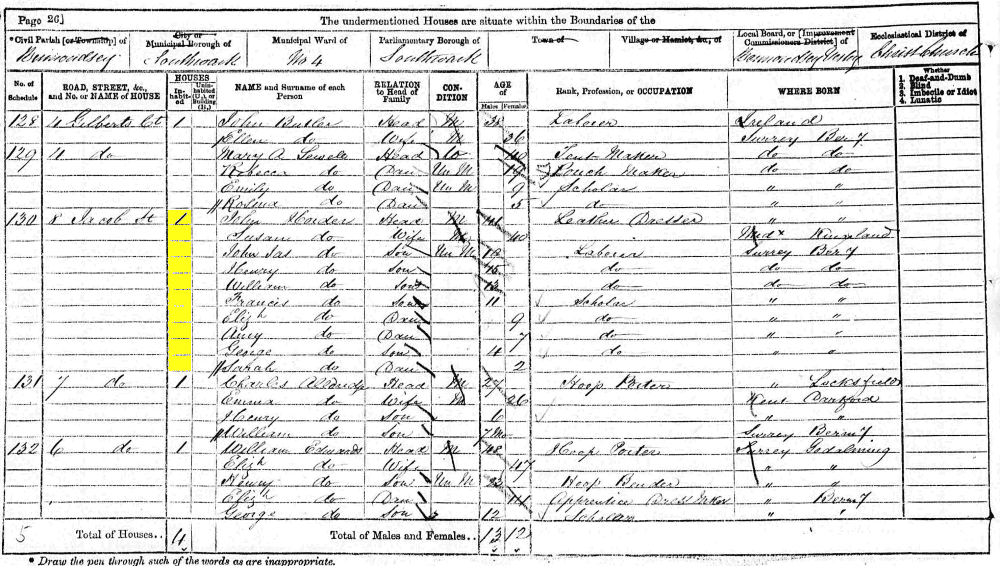 Page 26]
The undermentioned Houses are situate within the Boundaries of the
*Civil Parish [or Township] of
City or Municipal Borough of
Municipal Ward of
Parliamentary Borough of
Town of
Village or Hamlet, &c., of
Local Board, or [Improvement Commissioners District] of
Ecclesiastical District of
Bermondsey Southwark No 4 Southwark Christ Church
No. of Schedule
ROAD, STREET, &c., and No. or NAME of HOUSE
HOUSES
Inhabited
Uninhabited (U.), or Building (B.)
NAME and Surname of each Person
RELATION to Head of Family
CONDITION
AGE of
Males Females
Rank, Profession, or OCCUPATION
WHERE BORN
Whether
1. Deaf-and-Dumb
2. Blind
3. Imbecile or Idiot
4. Lunatic
128 4 Gilberts Ct 1 John Butler Head M 38 Laborer Ireland
Ellen do Wife M 36 Surrey Bermy
129 4 do Mary A Sewell Head 40 Tent Maker do do
Rebecca do Dau Un M 19 Pouch Maker do do
Emily do Dau Un M 9 Scholar " "
do Dau 5 do " "
130 8 Jacob St 1 John Head M 41 Leather Dresser " "
Susan do Wife M 40 Midx Kingsland
John Jas do Son Un M 19 Laborer Surrey Bermy
Henry do Son 15 do do do
William do Son 13 do do do
Francis do Son 11 Scholar " "
Elizh do Dau 9 do " "
Amy do Dau 7 do " "
George do Son 4 do " "
Sarah do Dau 2
131 7 do 1 Charles Head M 27 Hoop " Locksfields
Emma do Wife M 26 Kent Dartford
Henry do Son 6 " "
William do Son 7 Mo Surrey Bermy
132 6 do 1 William Edwards Head M 48 Hoop Porter Surrey Godalming
Elizh do Wife 47 " "
Henry do Son Un M 23 Hoop Bender " "
Elizh do Dau 14 Apprentice Dress Maker " Bermy
George do Son 12 Scholar " "
5 Total of Houses.. 4 Total of Males and Females.. 13 12
* Draw the pen through such of the words as are inappropriate.